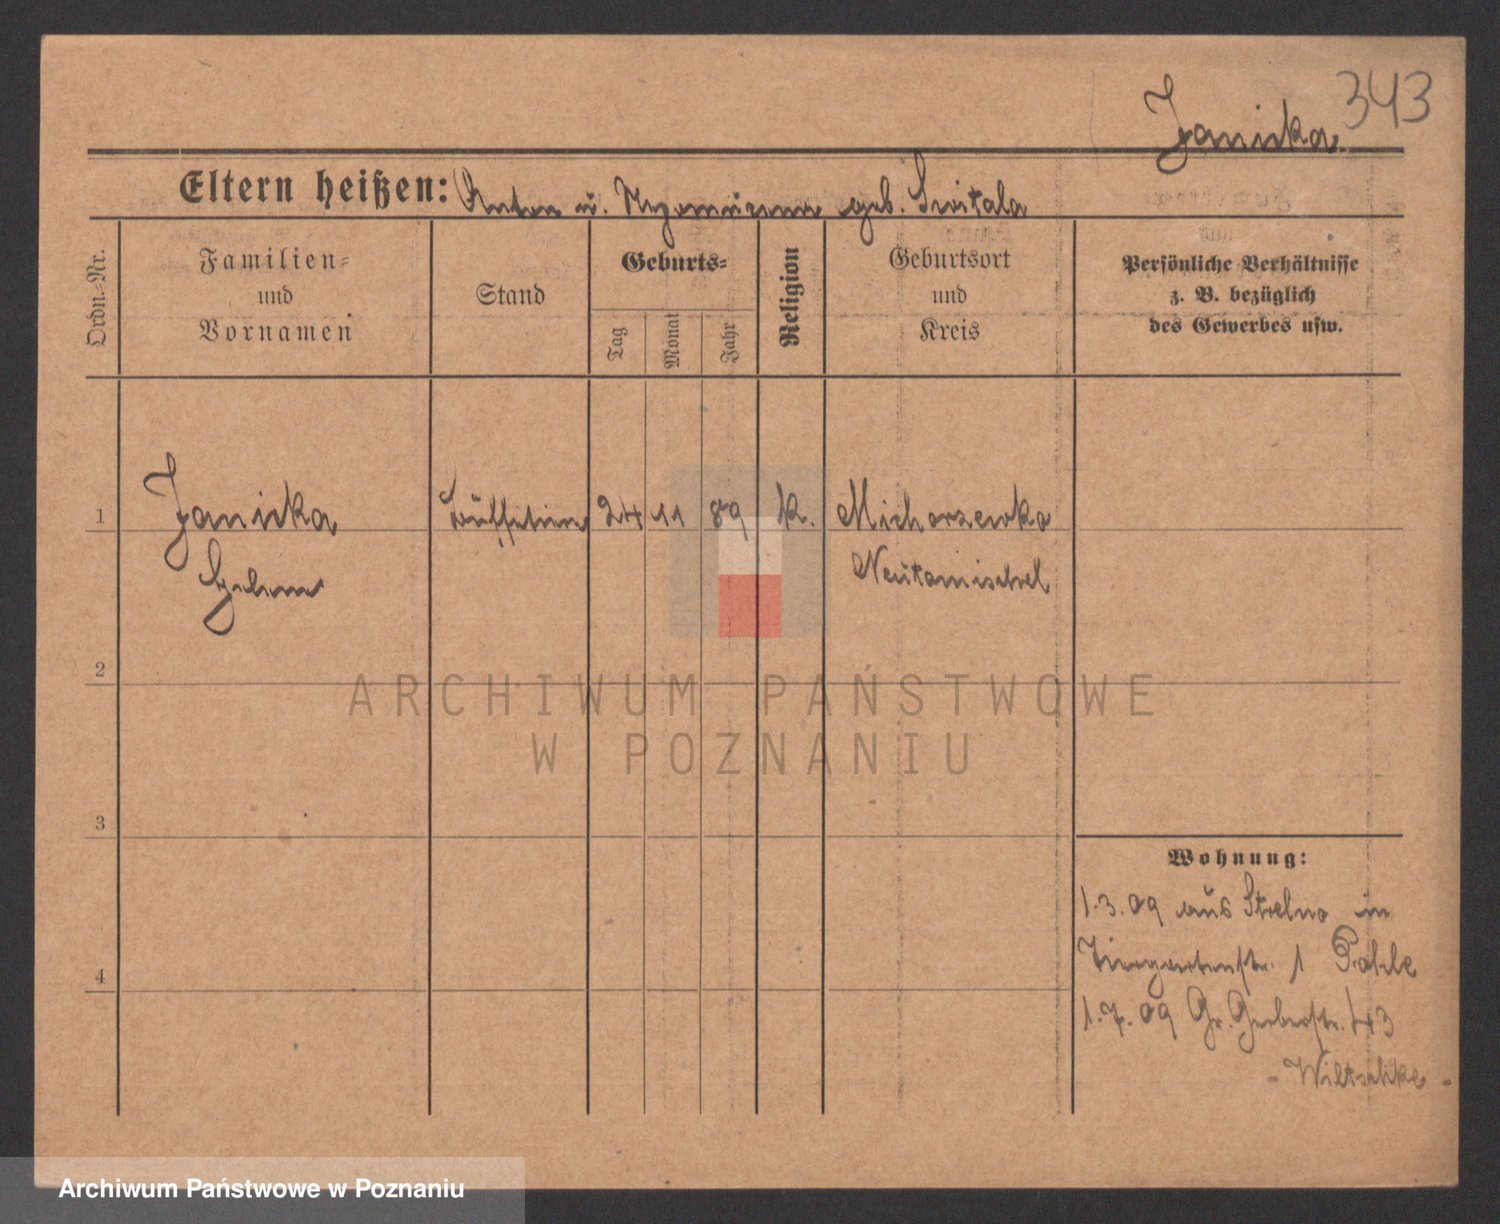 343
Janicka.
Eltern heißen: Anton u. geb. Switala
Ordn.-Nr.
Familien-
und
Vornamen
Stand
Geburts-
Tag
Monat
Jahr
Religion
Geburtsort
und
Kreis
Persönliche Verhältnisse
z. B. bezüglich
des Gewerbes usw.
1
Janicka
24 11 89 K.
Michorzewka
Neutomischel
2
ARCHIWUM PAŃSTWOWE
W POZNANIU
3
Wohnung:
1.3.09 aus Strelno in
Tiergartenstr. 1
4
1.7.09 Gr. Gerberstr. 43
- Wiltschke -
Archiwum Państwowe w Poznaniu